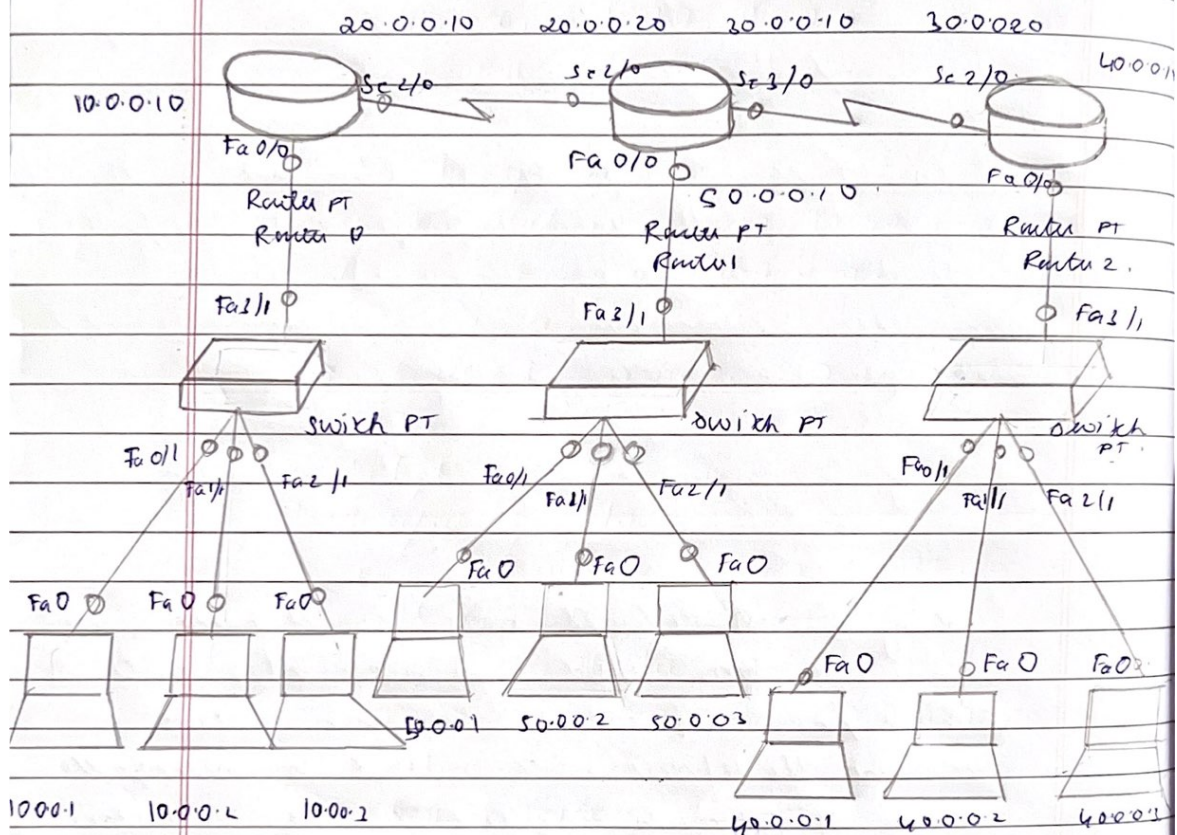 20.0.0.10 20.0.0.20 30.0.0.10 30.0.020
40.0.0.1
10.0.0.10 Se 2/0 Se 2/0 Se 3/0 Se 2/0
Fa 0/0 Fa 0/0 Fa 0/0
50.0.0.10
Router PT Router PT Router PT
Router 0 Router 1 Router 2.
Fa3/1 Fa 3/1 Fa3/1
Switch PT Switch PT Switch PT.
Fa 0/1 Fa1/1 Fa 2/1 Fa0/1 Fa1/1 Fa2/1 Fa0/1 Fa1/1 Fa 2/1
Fa0 Fa0 Fa0
Fa0 Fa0 Fa0
Fa0 Fa0 Fa0
50.0.01 50.00.2 50.0.03
10.00.1 10.0.0.2 10.00.2 40.0.0.1 40.0.0.2 40.0.0.3